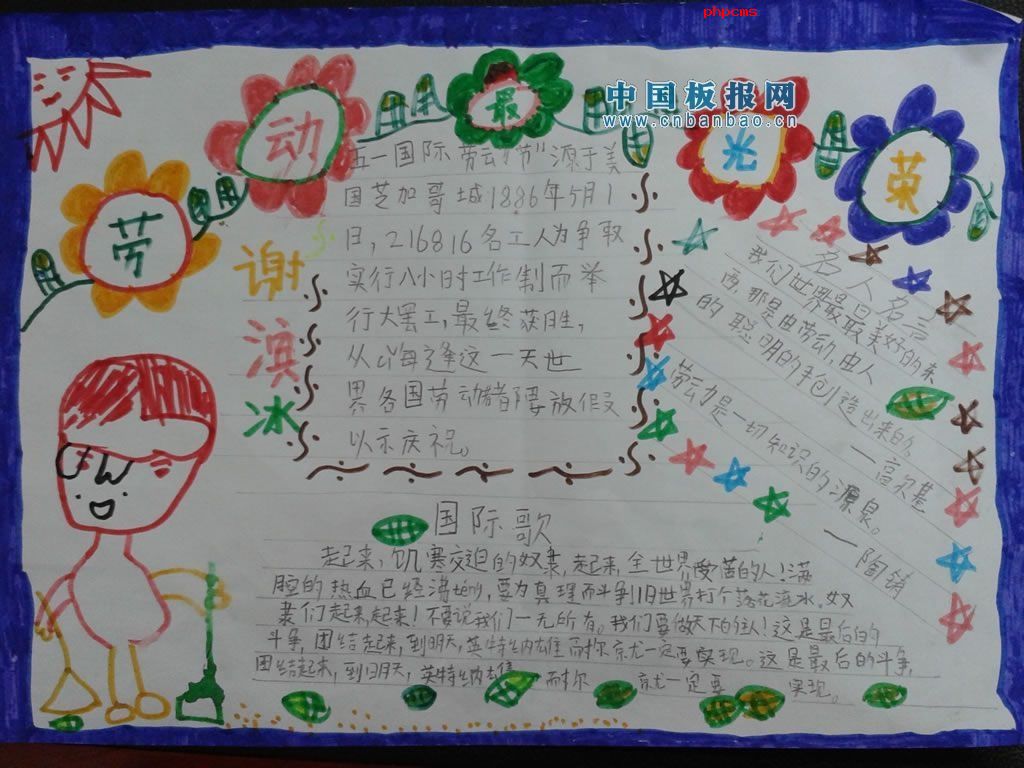 phpcms
中国板报网
www.cnbanbao.cn
劳动最光荣
谢滨冰
五一国际劳动"节"源于美
国芝加哥城1886年5月1
日,216816名工人为争取
实行八小时工作制而举
行大罢工,最终获胜,
从此每逢这一天世
界各国劳动者都要放假
以示庆祝。
名人名言
我们世界最最美好的东
西,那是由劳动,由人
的聪明的手创造出来的。
—高尔基
劳动力是一切知识的源泉。
—陶铸
国际歌
起来,饥寒交迫的奴隶,起来,全世界受苦的人!满
腔的热血已经沸腾,要为真理而斗争!旧世界打个落花流水,奴
隶们起来,起来!不要说我们一无所有。我们要做天下的主人!这是最后的
斗争,团结起来,到明天,英特纳雄耐尔就一定要实现。这是最后的斗争,
团结起来,到明天,英特纳雄耐尔就一定要实现。